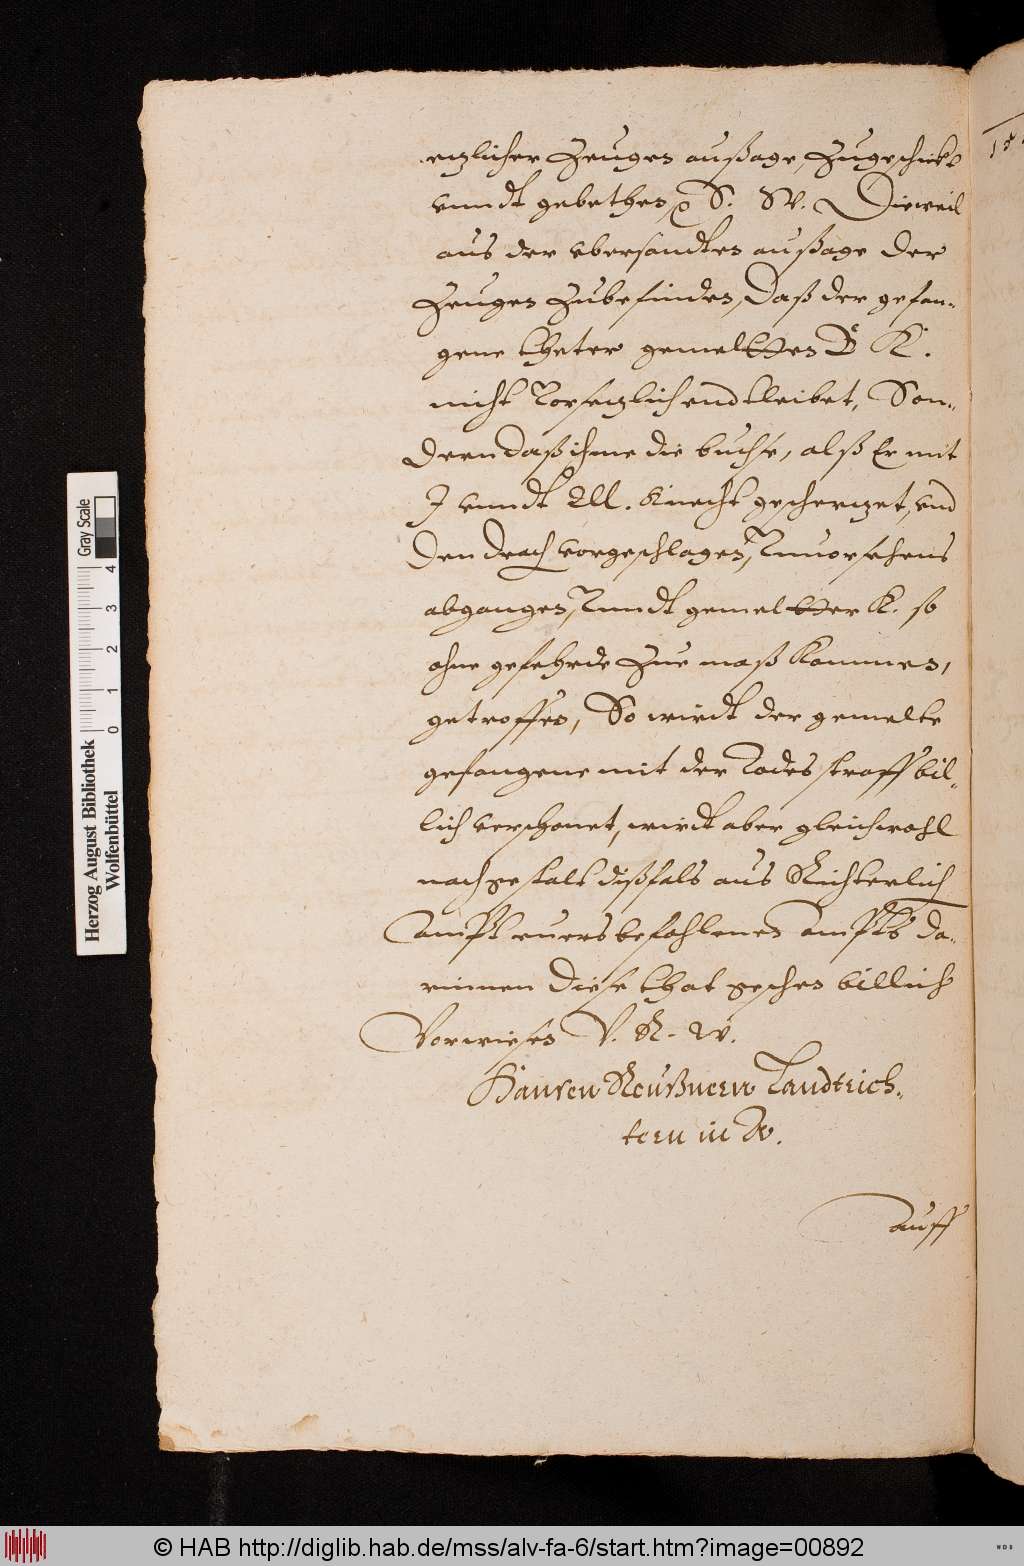 etzlicher Zeugen außage, zugeschickt
vnndt gebethen S. W. Dieweil
aus der vbersandten außage der
Zeugen Zubefinden, Daß der gefan-
gene theter gemelten K.
nicht Vorsetzlich endtleibet, Son-
dern daß ihme die buchse, alß Er mit
J vnndt M. Knecht gescherzet, vnd
den vorgeschlagen, Vnuorsehens
abgangen, Vnndt gemelter K. so
ohne gefehrde Zue maß Kommen,
getroffen, So wirdt der gemelte
gefangene mit der Todes straff bil-
lich verschonet, wirdt aber gleichwohl
nach gestalt dißfals aus Richterlich
Ampt euers befohlenen ampts da-
rinnen diese that geschen billich
Vorwiesen V. R. W.
Hansen Reußnern Landtrich-
tern in W.
auff
Herzog August Bibliothek
Wolfenbüttel
0 1 2 3 4
Gray Scale
© HAB http://diglib.hab.de/mss/alv-fa-6/start.htm?image=00892